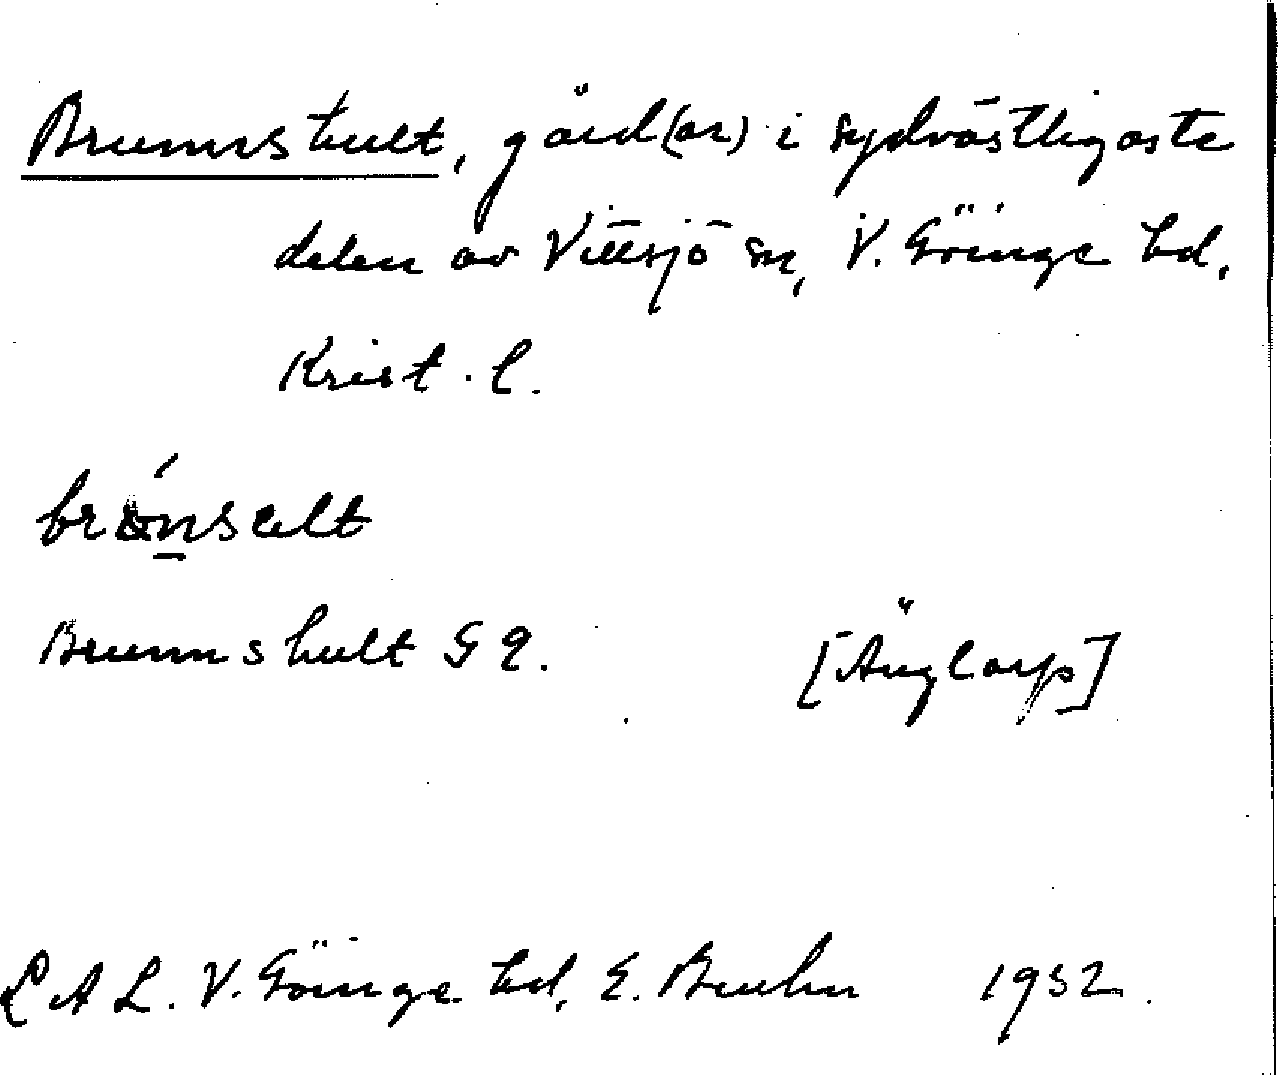 Brunnshult, gård(ar) i sydvästligaste
delen av Vittsjö sn, V. Göinge hd,
Krist. l.
Brunnshult G 9. [Änglarp]
L A L. V. Göinge hd, E. Bruhn 1932.